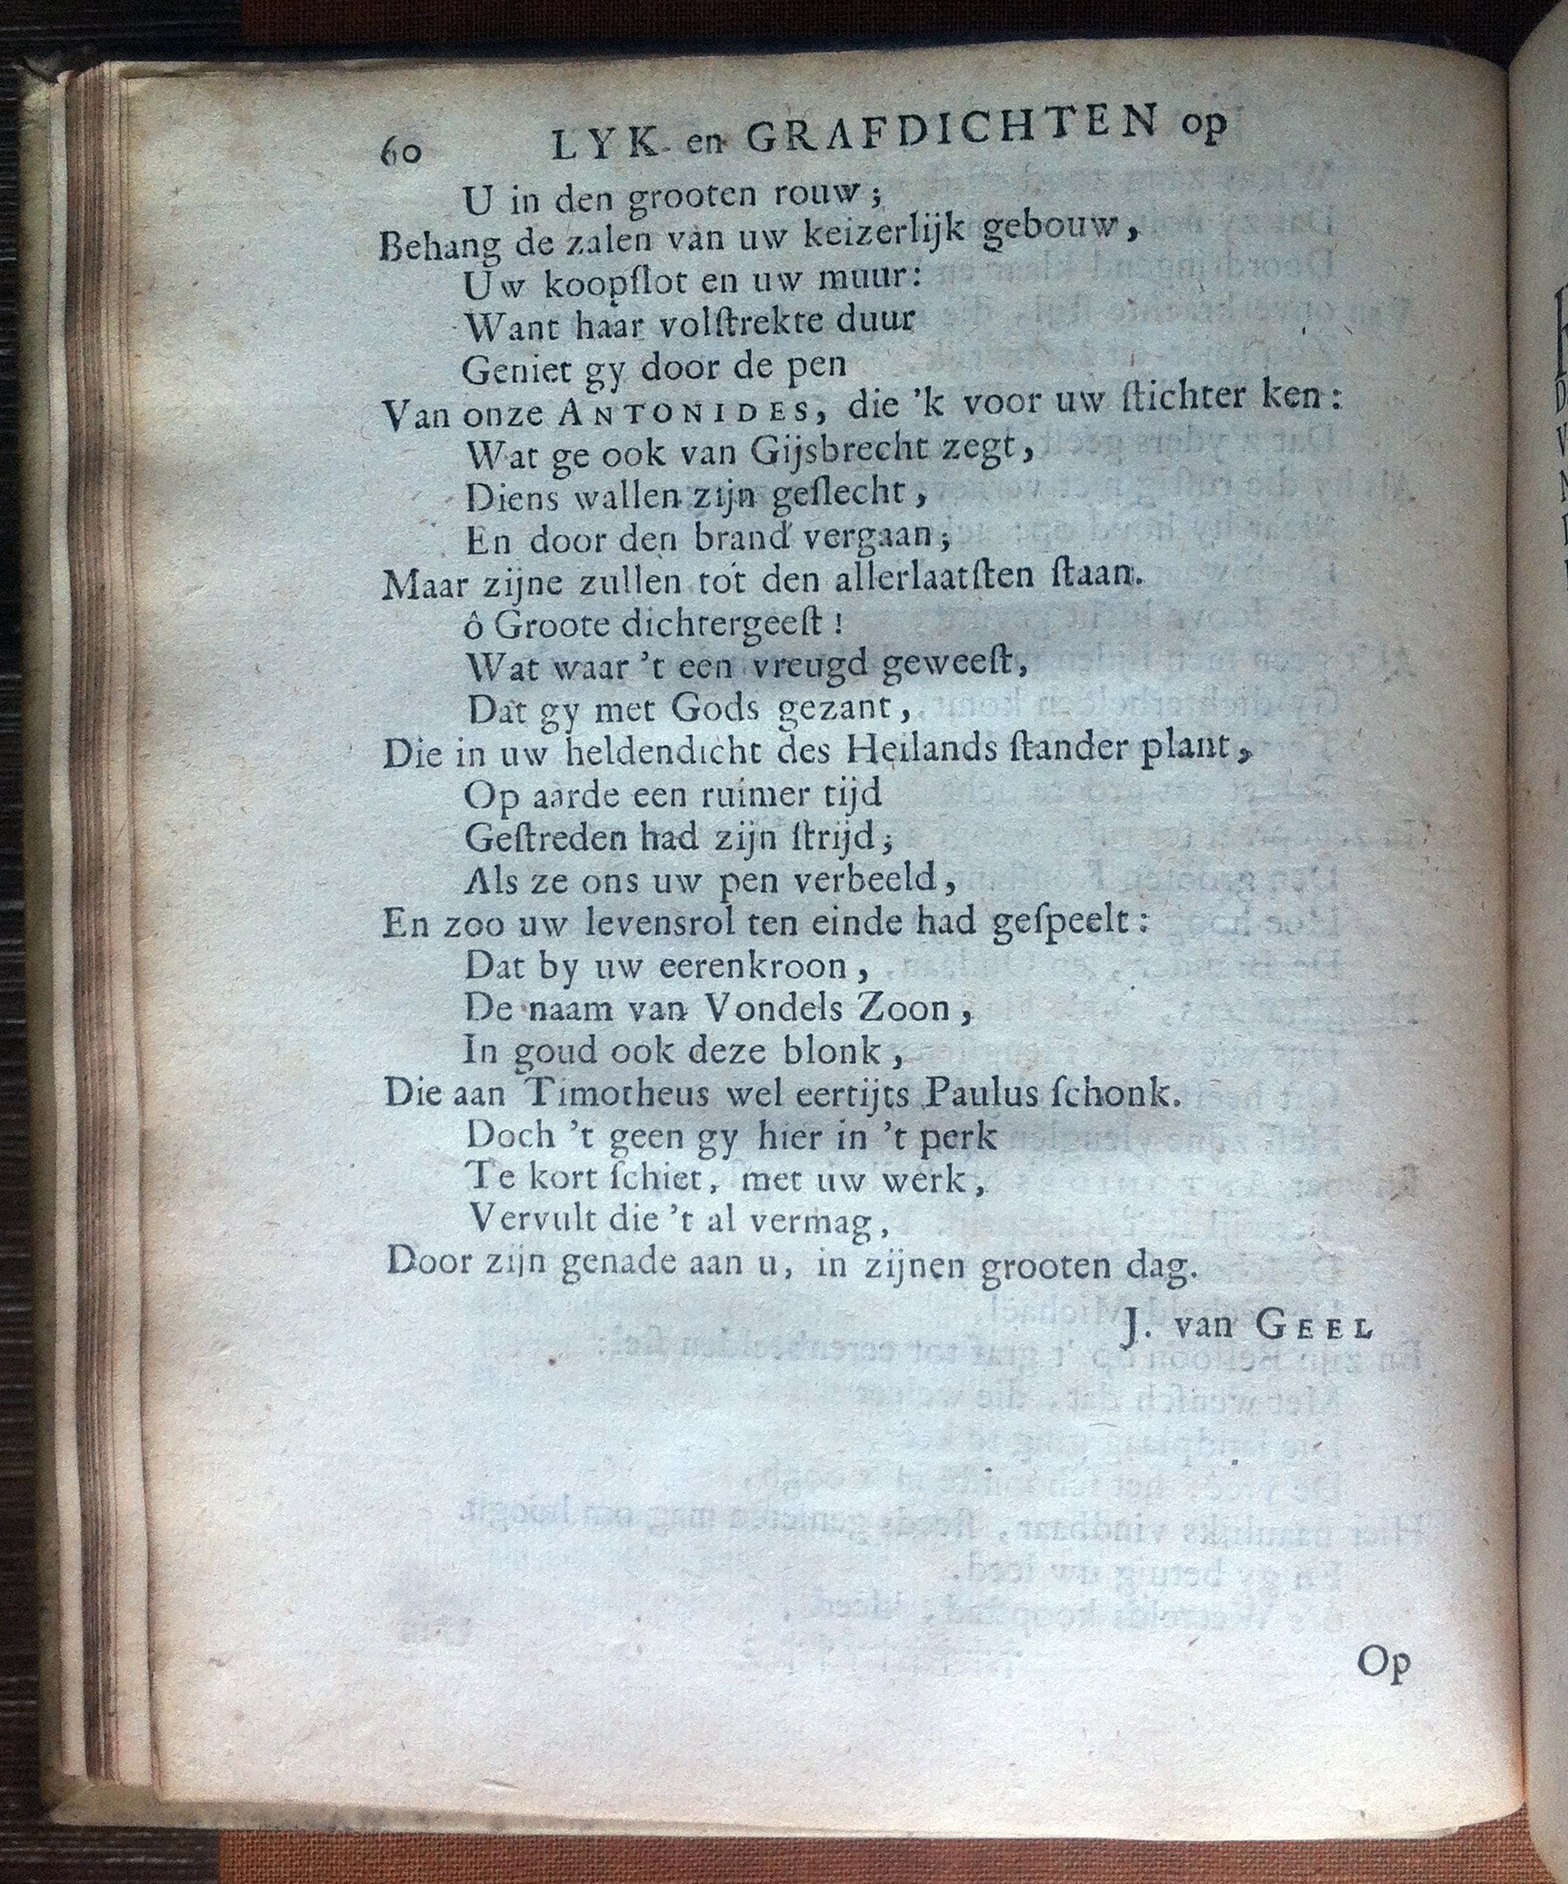 60 LYK- en GRAFDICHTEN op
U in den grooten rouw;
Behang de zalen van uw keizerlijk gebouw,
Uw koopſlot en uw muur:
Want haar volſtrekte duur
Geniet gy door de pen
Van onze ANTONIDES, die 'k voor uw ſtichter ken:
Wat ge ook van Gijsbrecht zegt,
Diens wallen zijn geſlecht,
En door den brand vergaan;
Maar zijne zullen tot den allerlaatſten ſtaan.
ô Groote dichtergeeſt!
Wat waar 't een vreugd geweeſt,
Dat gy met Gods gezant,
Die in uw heldendicht des Heilands ſtander plant,
Op aarde een ruimer tijd
Geſtreden had zijn ſtrijd;
Als ze ons uw pen verbeeld,
En zoo uw levensrol ten einde had geſpeelt:
Dat by uw eerenkroon,
De naam van Vondels Zoon,
In goud ook deze blonk,
Die aan Timotheus wel eertijts Paulus ſchonk.
Doch 't geen gy hier in 't perk
Te kort ſchiet, met uw werk,
Vervult die 't al vermag,
Door zijn genade aan u, in zijnen grooten dag.
J. van GEEL
Op